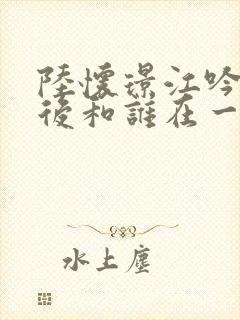 陸懷璟江吟
後和誰在一
水上塵